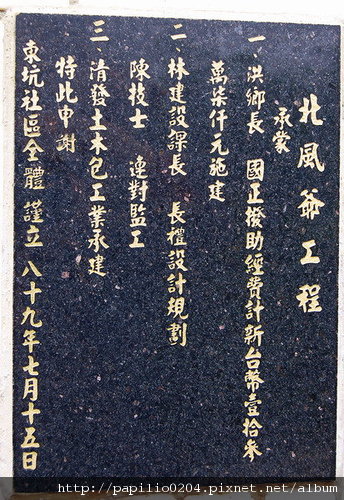 北風爺工程
承蒙
一、洪鄉長 國正撥助經費計新台幣壹拾柒
萬柒仟元施建
二、林建設課長 長禮設計規劃
陳技士 連對監工
三、清發土木包工業承建
特此申謝
東坑社區全體 謹立 八十九年七月十五日
http://papilio0204.pixnet.net/album